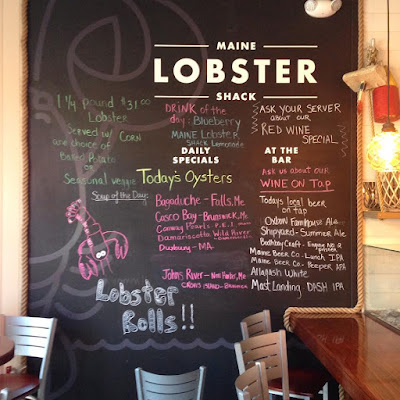 MAINE
LOBSTER
SHACK
1 1/4 pound $31.00
Lobster
Served w/ CORN
and choice of
Baked Potato
or
Seasonal veggie
Soup of the Day:
Lobster
Rolls!!
DRINK of the
day: Blueberry
MAINE Lobster
Shack Lemonade
DAILY
SPECIALS
Today's Oysters
Bagaduce - Falls, Me
Casco Bay - Brunswick, Me
Conway Pearls P.E.I
Damariscotta Wild River
Duxbury - MA
Johns River - 
ASK YOUR SERVER
about our
RED WINE
SPECIAL
AT THE
BAR
Ask us about our
WINE ON TAP
Todays local beer
on tap
Oxbow FarmHouse Ale
Shipyard - Summer Ale
Boothbay Craft -
Maine Beer Co - Lunch IPA
Maine Beer Co - Peeper APA
Allagash White
Mast Landing DASH IPA